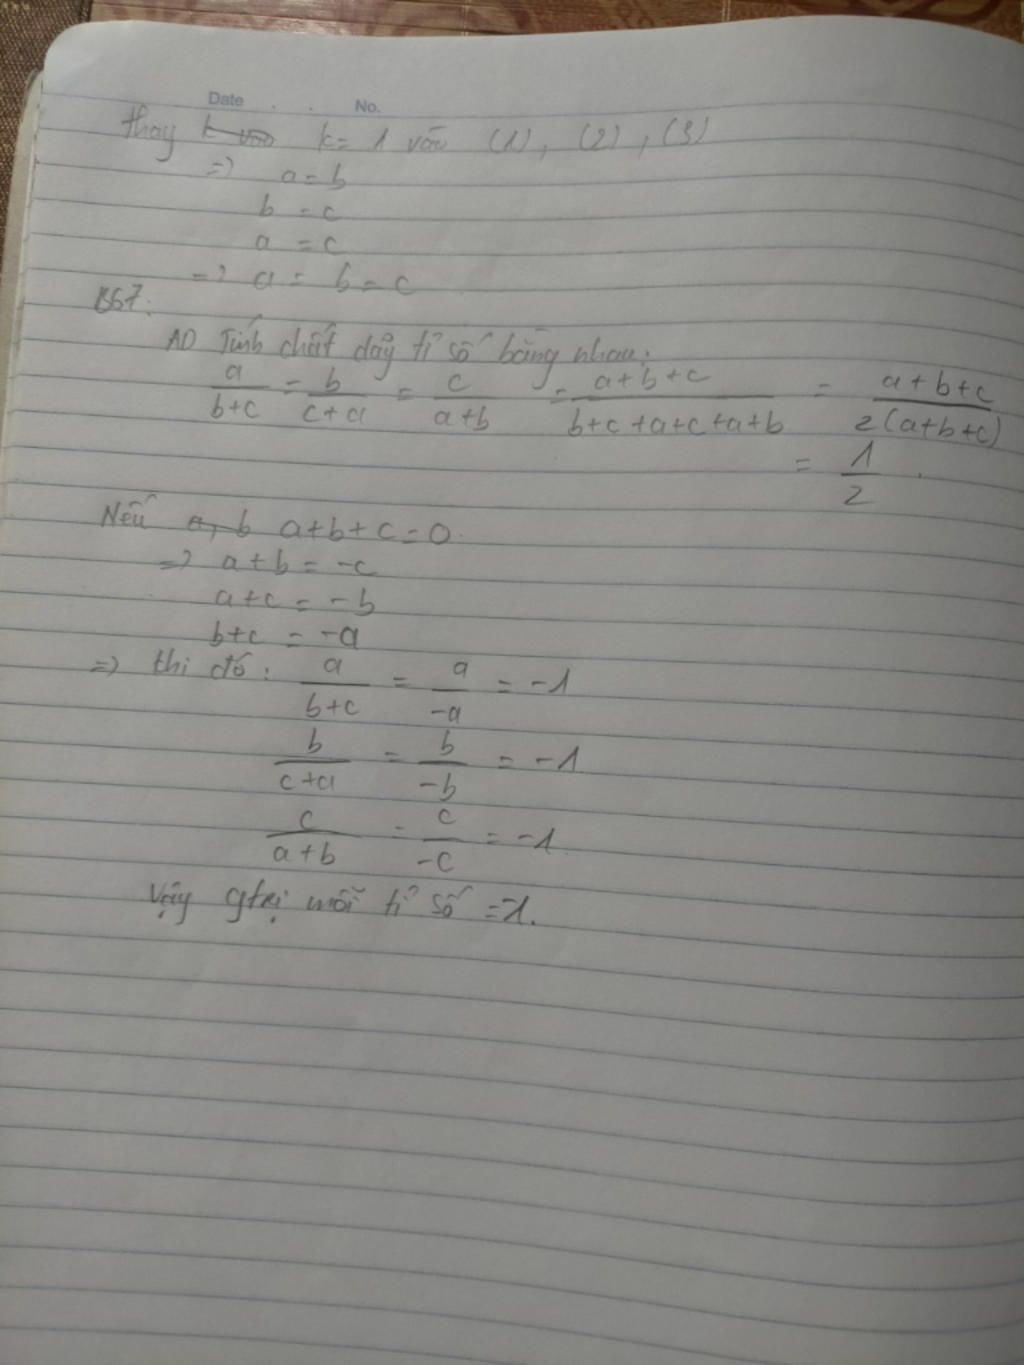 Date . . No.
thay k vào k = 1 vào (1), (2), (3)
=> a = b
b = c
a = c
=> a = b = c
B67:
AD Tính chất dãy tỉ số bằng nhau:
a/(b+c) = b/(c+a) = c/(a+b) = (a+b+c)/(b+c+a+c+a+b) = (a+b+c)/(2(a+b+c))
= 1/2
Nếu a, b a+b+c=0
=> a+b = -c
a+c = -b
b+c = -a
=> thì đó: a/(b+c) = a/(-a) = -1
b/(c+a) = b/(-b) = -1
c/(a+b) = c/(-c) = -1
Vậy gtrị mỗi tỉ số = -1.